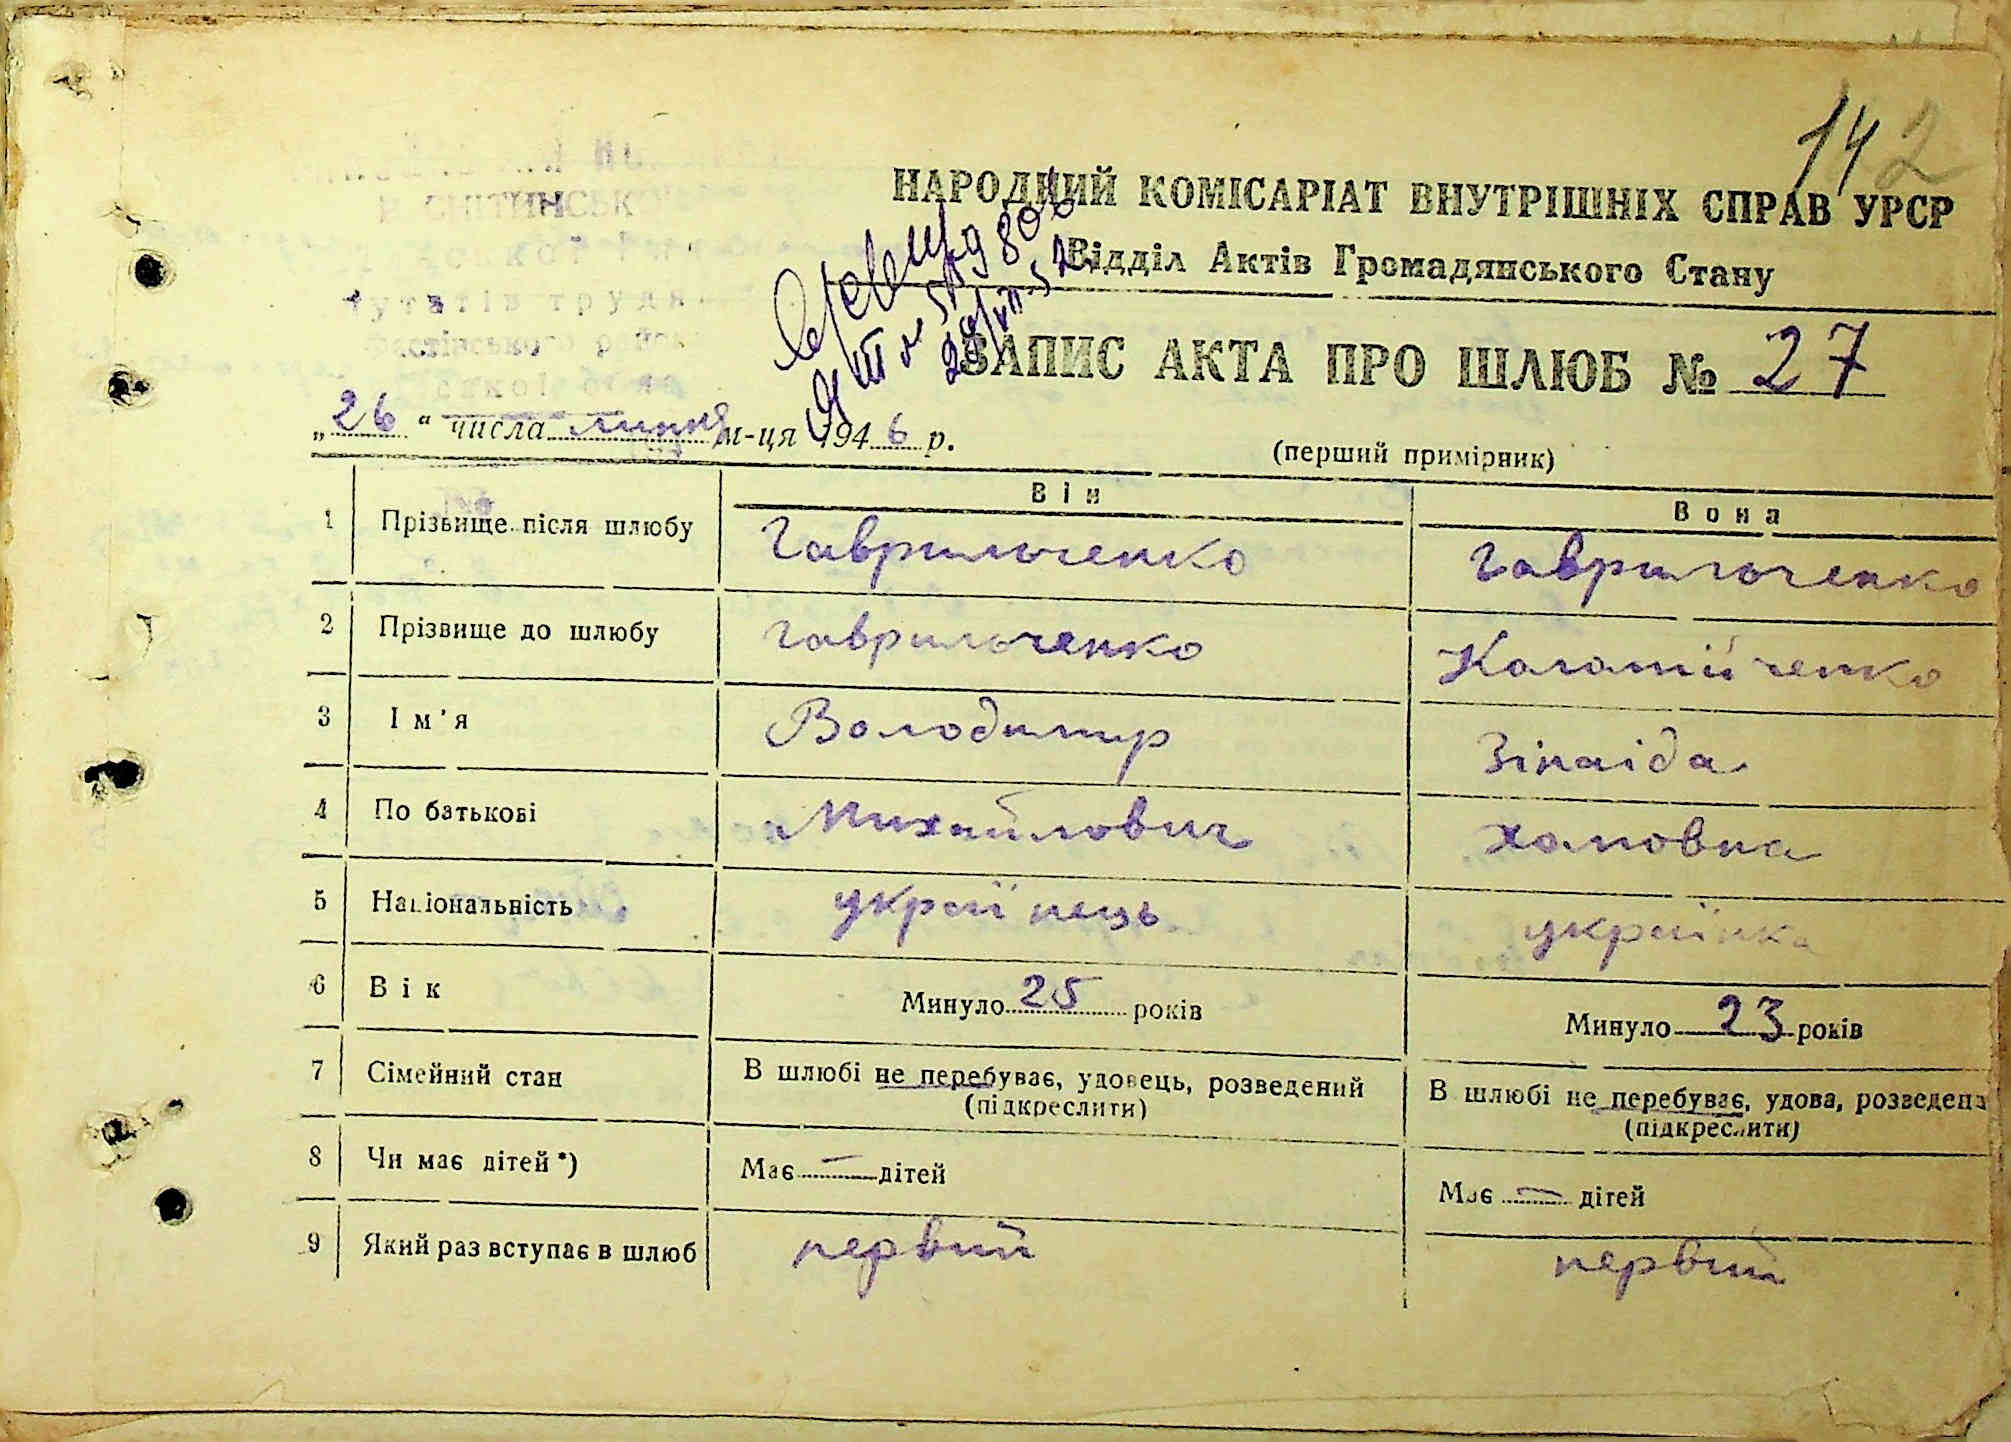 142
НАРОДНИЙ КОМІСАРІАТ ВНУТРІШНІХ СПРАВ УРСР
Відділ Актів Громадянського Стану
ЗАПИС АКТА ПРО ШЛЮБ № 27
„26“ числа липня м-ця 1946 р.
(перший примірник)
Він Вона
1 Прізвище після шлюбу Гаврильченко Гаврильченко
2 Прізвище до шлюбу Гаврильченко Коломійченко
3 Ім'я Володимир Зінаіда
4 По батькові Михайлович Хомовна
5 Національність українець українка
6 Вік Минуло 25 років Минуло 23 років
7 Сімейний стан В шлюбі не перебуває, удовець, розведений В шлюбі не перебуває, удова, розведена
(підкреслити) (підкреслити)
8 Чи має дітей*) Має — дітей Має — дітей
9 Який раз вступає в шлюб первий первий